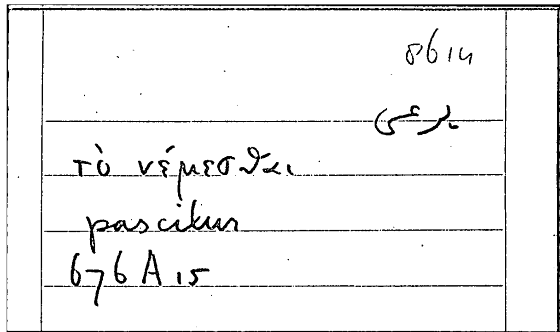 86 14
يرعى
τὸ νέμεσθαι
pascitur
676 A 15